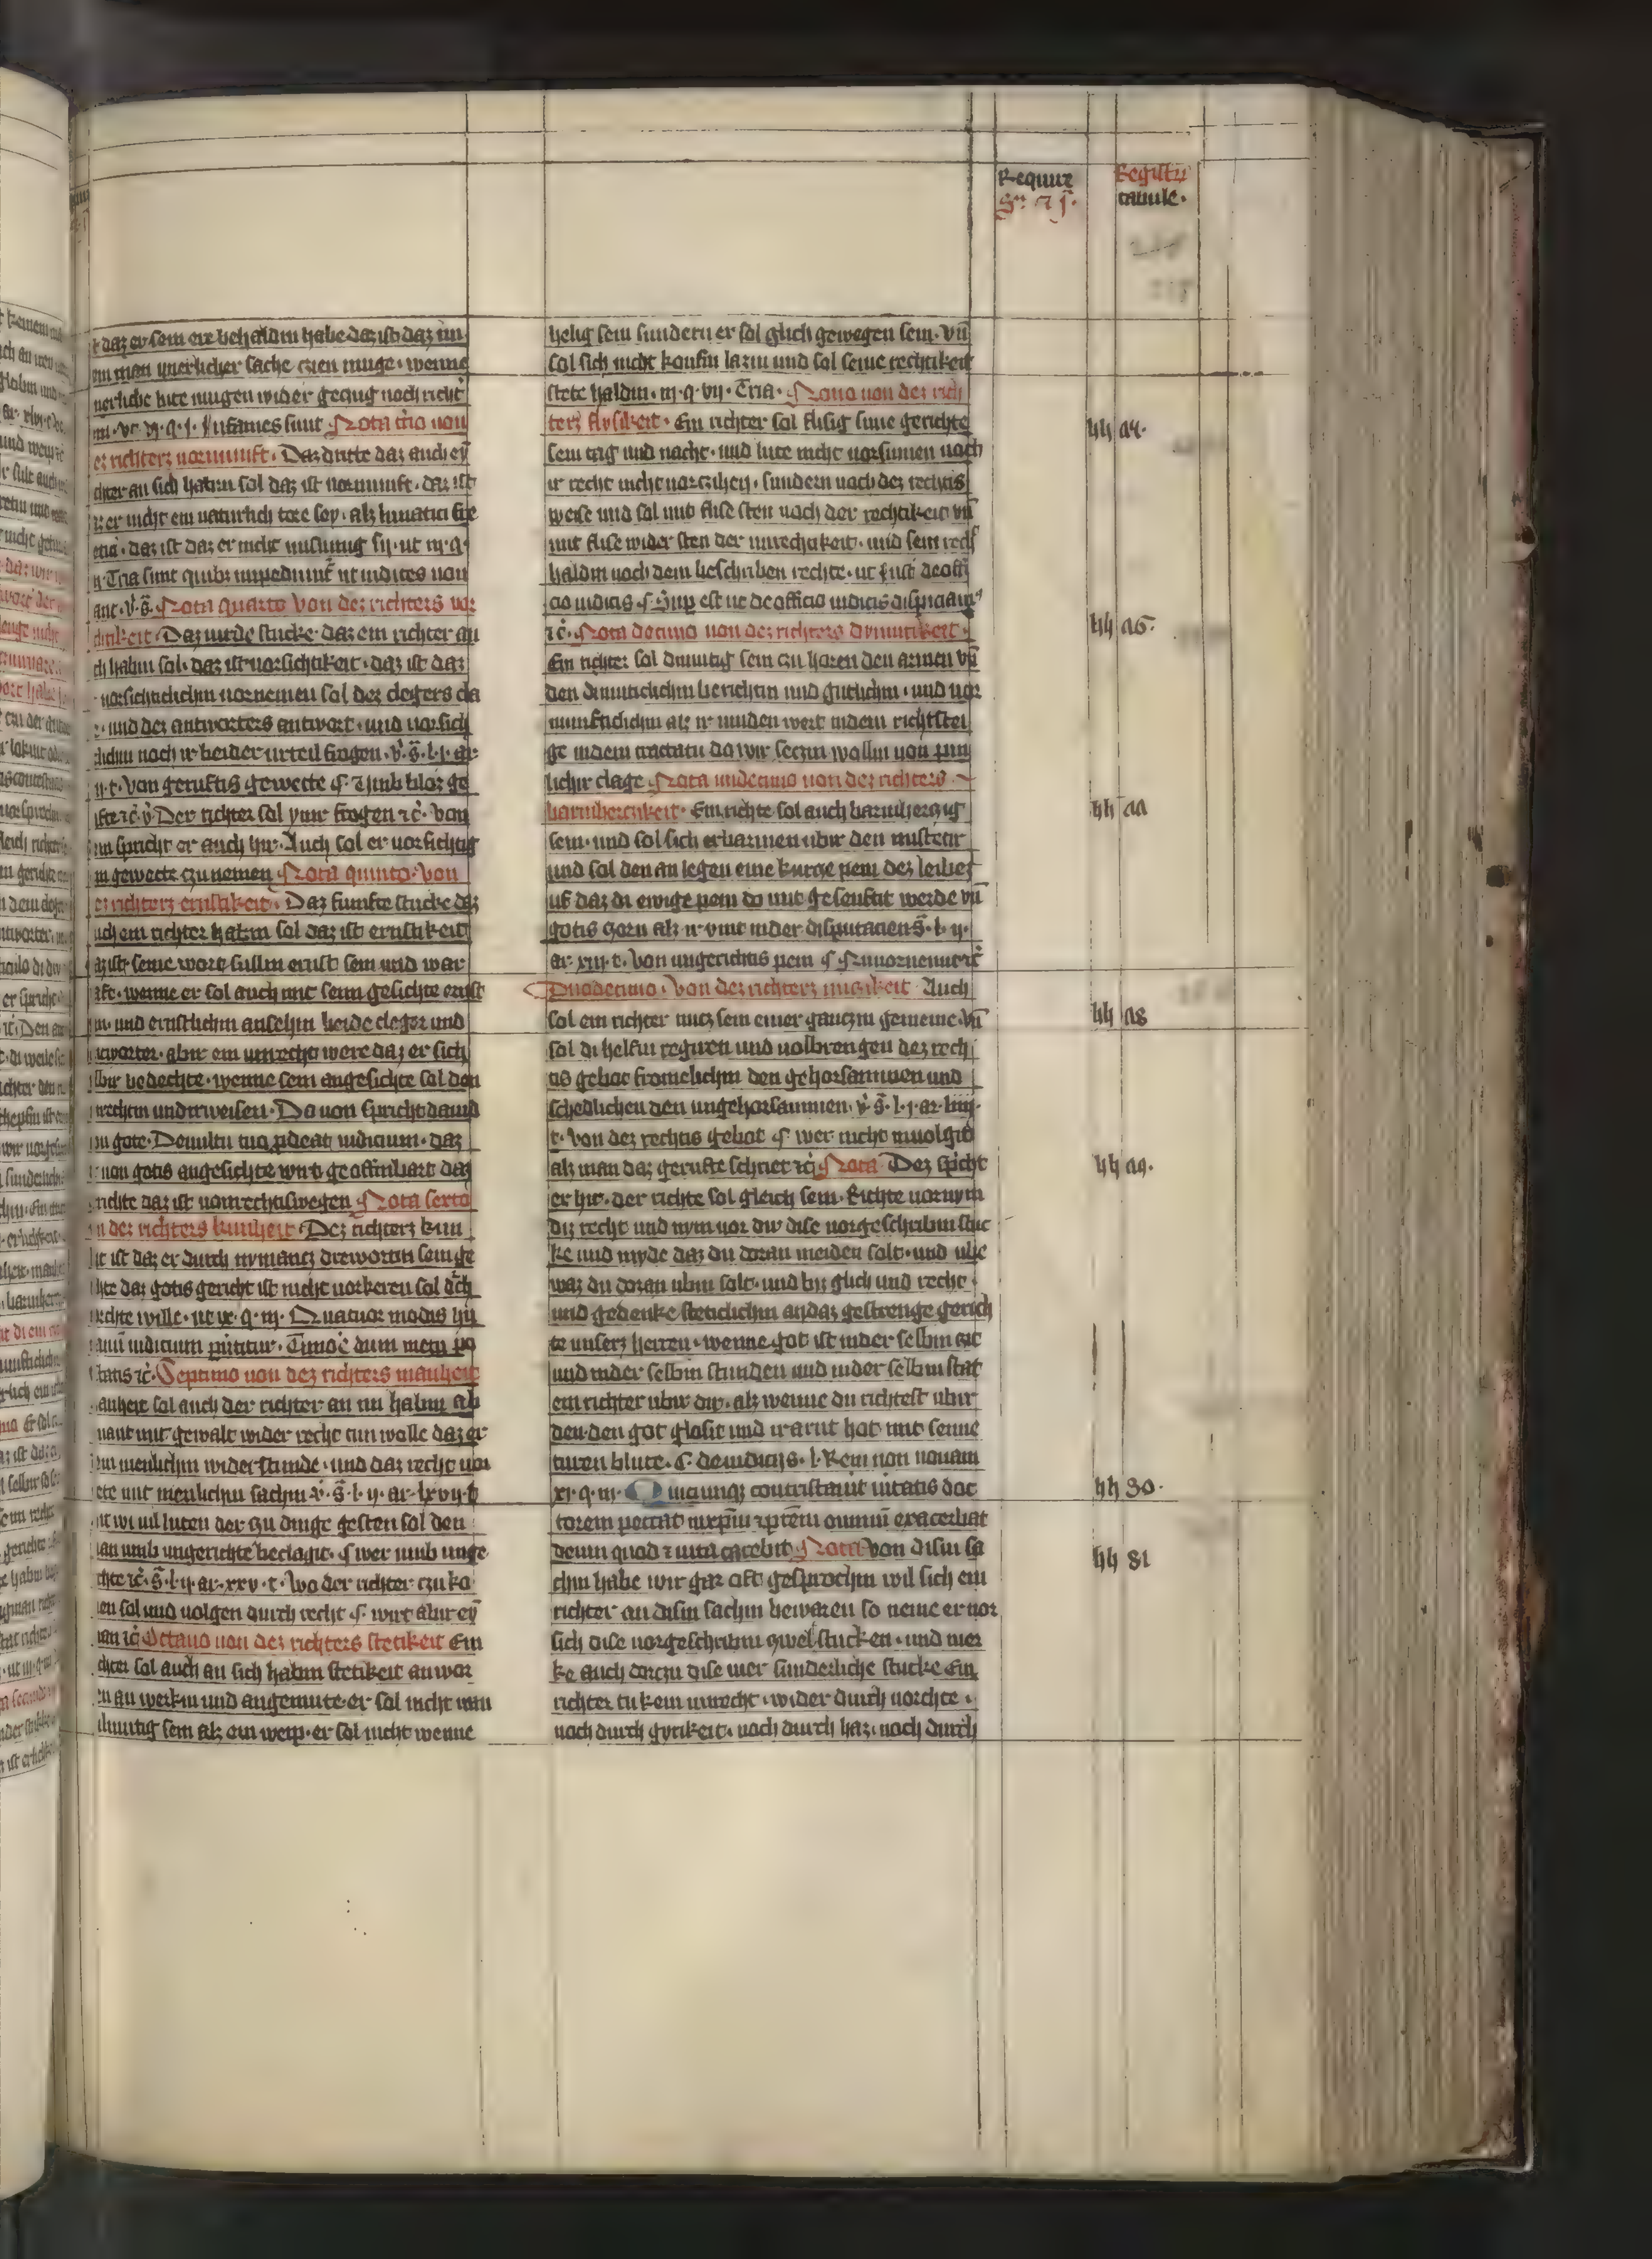 Require
Registrum
tabule.
daz er sein ere behaldin habe daz ist daz im
ein man unerlicher sache czien muge. wenne
nerliche lute mugen wider geczug noch richt
q. j. Infames sunt Nota tercio von
ez richterz vornunft. Daz dritte daz auch ey
chter an sich habin sol daz ist vornunft. daz ist
er nicht ein naturlich tore sey. alz lunatici
daz ist daz er nicht unsinnig sy. ut iij. q.
Tria sunt quibus impediuntur ut iudices non
Nota quarto Von dez richters vor
Daz virde stucke daz ein richter an
ch habin sol. daz ist vorsichtikeit. daz ist daz
vorsichticlichin vornemen sol dez clegers cla
und dez antworters antwort. und vorsich
lichin noch ir beider urteil fragen. l. j. ar.
t. Von geruftis gewette
Der richter sol ymir fragen ꝛc̄. von
im spricht er auch hir. Auch sol er vorsichtig
in gewette czu nemen Nota quinto. Von
ez richterz ernstikeit. Daz funfte stucke daz
uch ein richter habin sol daz ist ernstikeit
az ist. seine wort sullin ernst sein und war
wenne er sol auch mit seim gesichte ernst
und ernstlichin ansehin beide cleger und
ntworter. abir ein unrecht were daz er sich
bir bedechte. wenne sein angesichte sol den
rechtin underweisen. Do von spricht david
zu gote. De vultu tuo prodeat iudicium. daz
von gotis angesichte wirt geoffinbart daz
richte daz ist von rechtiswegen Nota sexto
n dez richters kunheit. Dez richterz kun
it ist daz er durch nymancz dreworten sein ge
hte daz gotis gericht ist nicht vorkeren sol
rechte wille. q. iij. Quatuor modis hu
iudicium Timore dum metu po
tatis ꝛc̄. Septimo von dez richters manheit
anheit sol auch der richter an im habin ab
mant mit gewalt wider recht tun wolle daz er
im menlichin widerstunde. und daz recht vor
mit menlichin sachin l. ij. ar. lxvij. t.
wi vil luten der czu dinge gesten sol den
an umb ungerichte beclagit. wer umb unge
chte ꝛc̄. l. ij. ar. xxv. t. Wo der richter czu ko
en sol und volgen durch recht wirt abir ey
an ꝛc̄ Octavo von dez richters stetikeit Ein
chter sol auch an sich habin stetikeit an wor
en an werkin und an gemute. er sol nicht wan
ilmutig sein alz ein weip. er sol nicht wenne
helig sein sundern er sol glich gewegen sein. vn̄
sol sich nicht koufin lazin und sol seine rechtikeit
stete haldin. iij. q. vij. Tria. Nono von dez rich
terz flysikeit. Ein richter sol flisig sime gerichte
sein tag und nacht. und lute nicht vorsumen noch
ir recht nicht vorczihen. sundern noch dez rechtis
weise und sol mit flise sten noch der rechtikeit vn̄
mit flise wider sten der unrechtikeit. und sein recht
haldin noch dem beschriben rechte. ut Inst. de offi
cio iudicis. Sup. est ut de officio iudicis dispiciamus
ꝛc̄. Nota decimo von dez richters demutikeit.
Ein richter sol dimutig sein czu horen den armen vn̄
den dimuticlichin berichtin und gutlichin. und vor
nunfticlichin alz ir vinden wert in dem richtstei
ge in dem tractatu do wir seczin wollin von pin
licher clage Nota undecimo von dez richters
barmherczikeit. Ein richte sol auch barmherczig
sein. und sol sich erbarmen ubir den misteter
und sol den an legen eine kurcze pein dez leibes
uf daz di ewige pein do mit gesenftit werde vn̄
gotis czorn alz ir vint in der disputacien l. ij.
ar. xiij. t. Von ungerichtis pein
Duodecimo. Von dez richterz nuczikeit Auch
sol ein richter nucz sein einer ganczin gemeine. vn̄
sol di helfin regiren und volbrengen dez rech
tis gebot fromelichin den gehorsammen und
schedlichen den ungehorsammen. l. j. ar. liiij.
t. Von dez rechtis gebot wer nicht envolgit
alz man daz gerufte schriet ꝛc̄ Nota Dez spricht
er hir. der richte sol gleich sein. Richte vornym
diz recht und nym vor dir dise vorgeschribin stuc
ke und myde daz du doran meiden solt. und ube
waz du doran ubin solt. und bis glich und recht.
und gedenke steticlichin an daz gestrenge gerich
te unserz herren. wenne got ist in der selbin zit
und in der selbin stunden und in der selbin stat
ein richter ubir dir. alz wenne du richtest ubir
den. den got glosit und irarnt hot mit seime
turen blute. C. de iudicijs. l. Rem non novam
xi. q. iij. Quicunque contristaverit veritatis doc
torem peccat in christum et patrem omnium exacerbat
deum quod et vita carebit Nota Von disin sa
chin habe wir gar oft gesprochin wil sich ein
richter an disin sachin bewaren so neme er vor
sich dise vorgeschribin czwelf stucken. und mer
ke auch dorczu dise vier sunderliche stucke Ein
richter tu kein unrecht. wider durch vorchte.
noch durch gyrikeit. noch durch haz. noch durch
hh 30.
hh 31